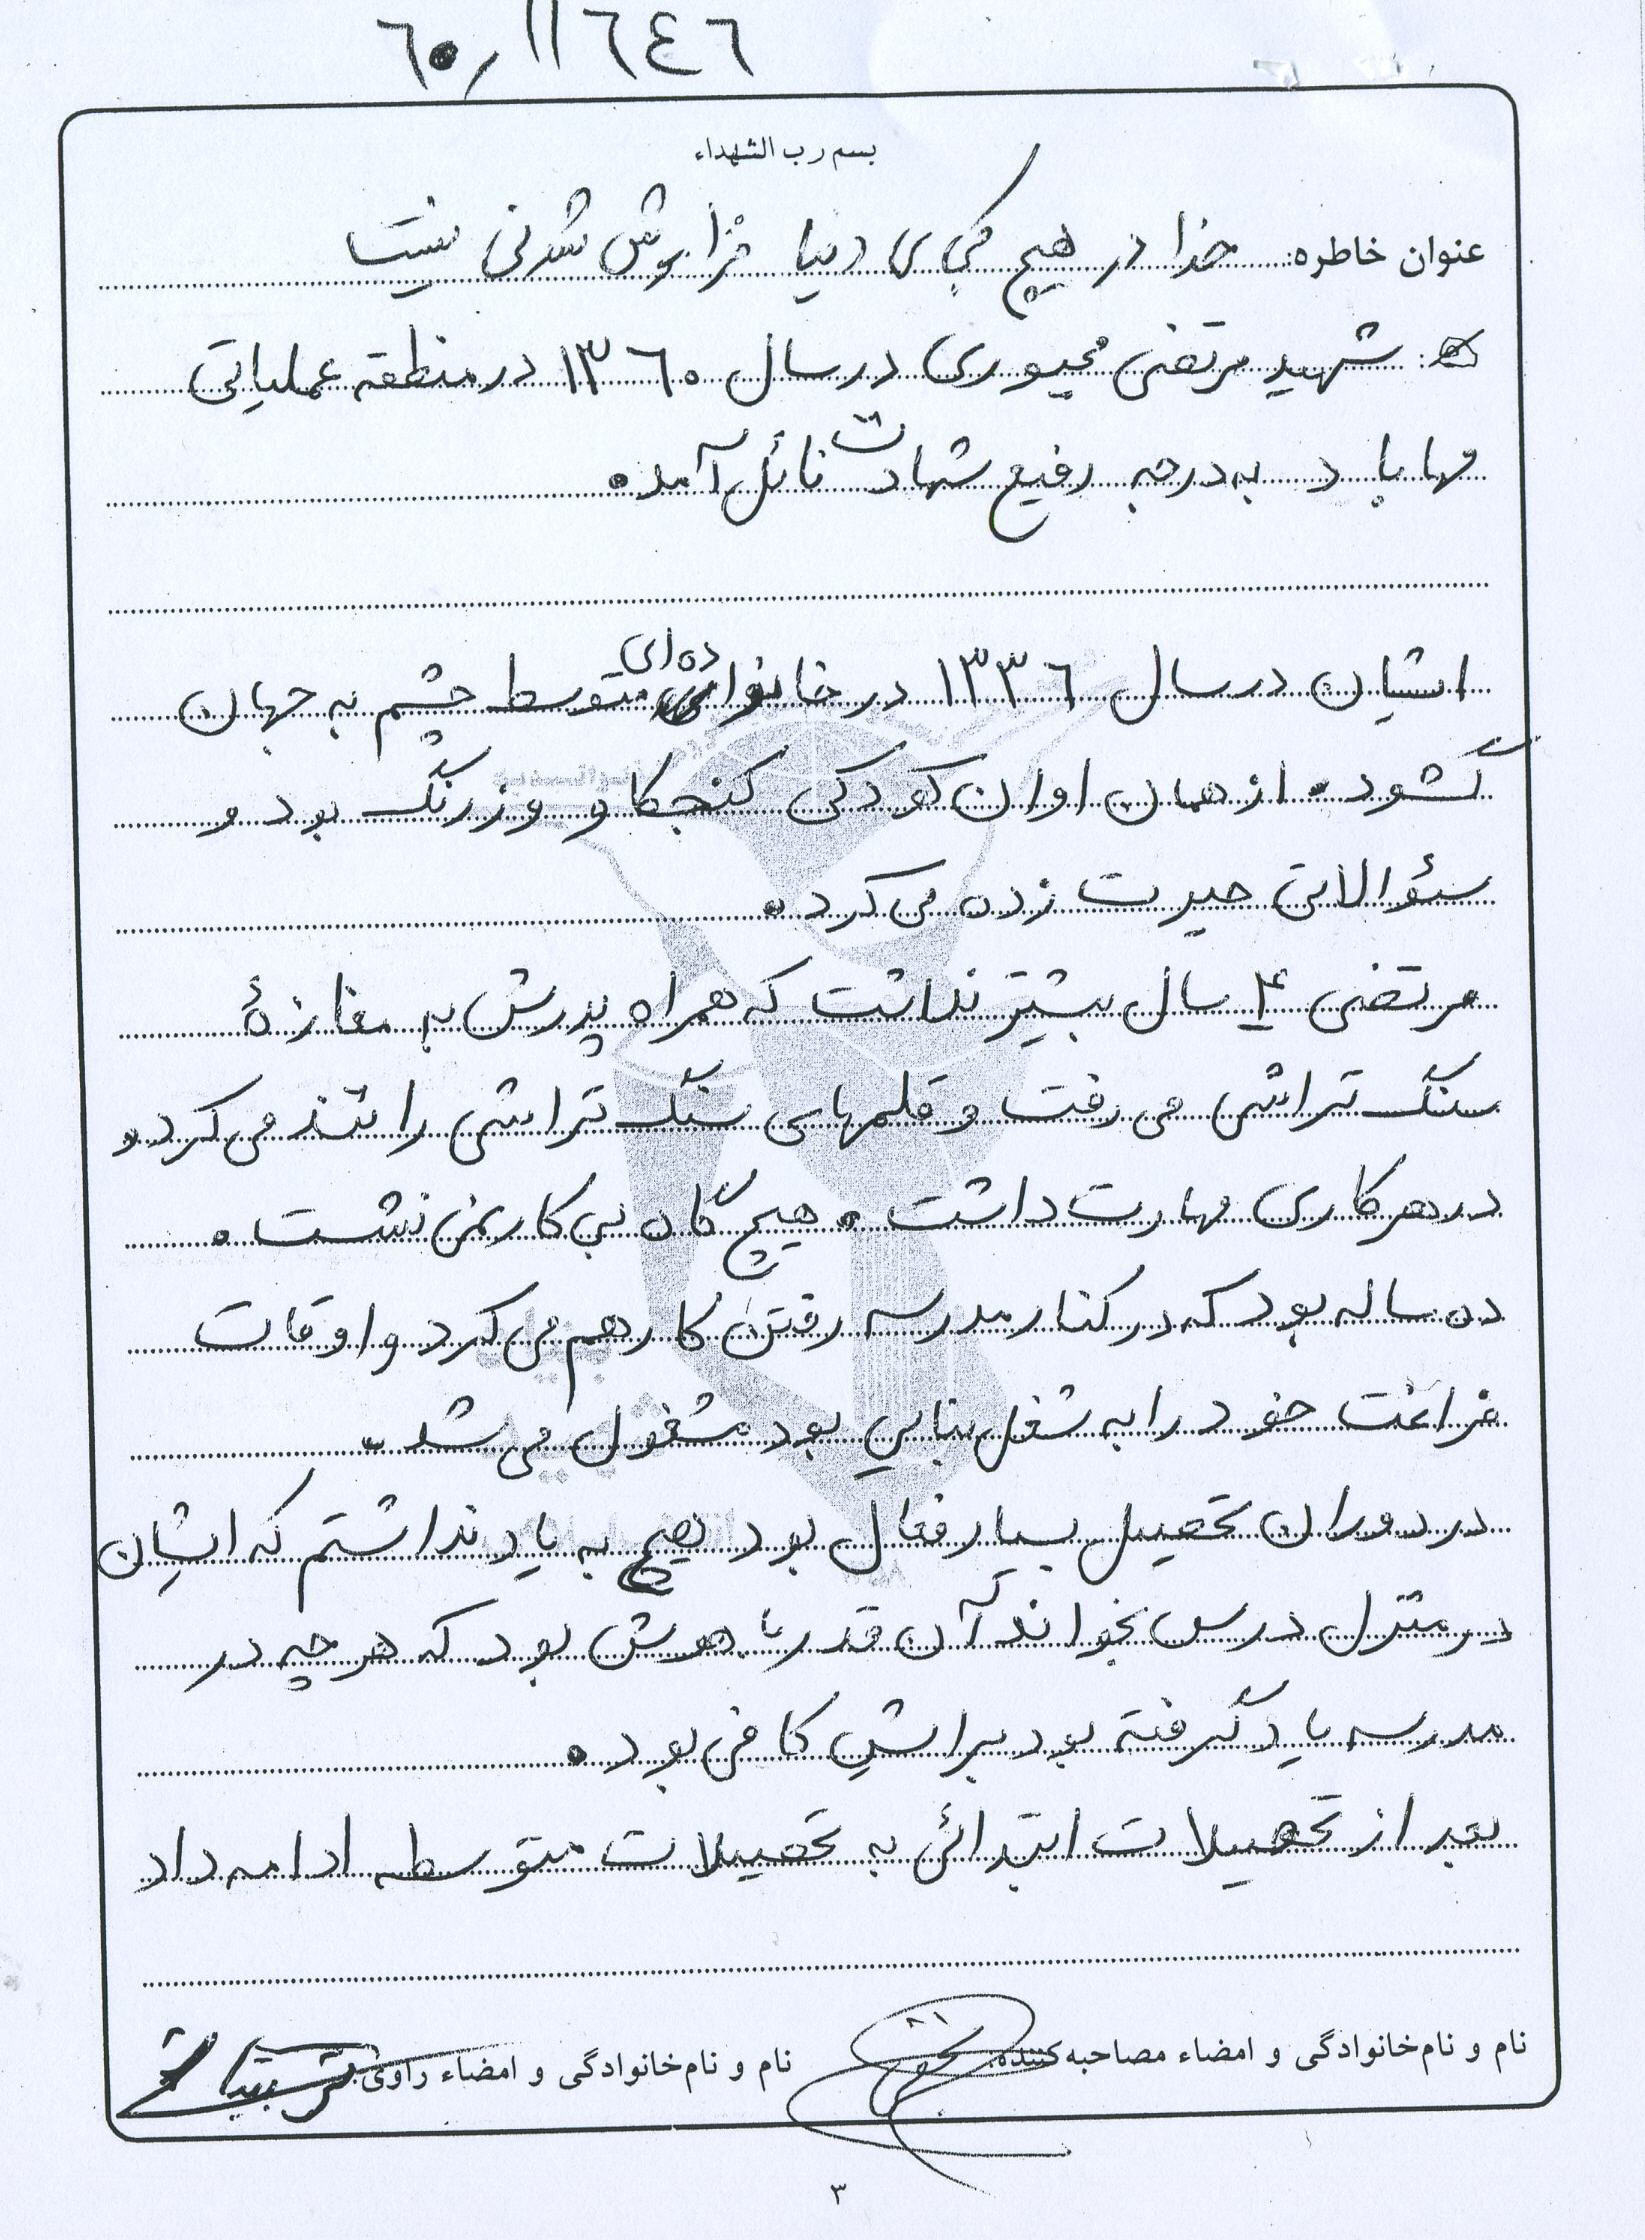 ٦٠/١١٦٤٦
بسم رب الشهداء
عنوان خاطره: خدا در هیچ کجای دنیا فراموش شدنی نیست
: شهید مرتضی در سال ١٣٦٠ در منطقه عملیاتی
مهاباد به درجه رفیع شهادت نائل آمد.
ایشان در سال ١٣٣٦ در خانواده‌ای متوسط چشم به جهان
گشود. از همان اوان کودکی کنجکاو و زرنگ بود و
سئوالاتی حیرت زده می کرد.
مرتضی ۴ سال بیشتر نداشت که همراه پدرش به مغازهٔ
سنگ تراشی می رفت و قلمهای سنگ تراشی را تند می کرد و
در هر کاری مهارت داشت. هیچ گاه بی کار نمی نشست.
ده ساله بود که در کنار مدرسه رفتن کار هم می کرد و اوقات
فراغت خود را به شغل بنایی بود مشغول می شد.
در دوران تحصیل بسیار فعال بود هیچ به یاد نداشتم که ایشان
در منزل درس بخواند آن قدر با هوش بود که هر چه در
مدرسه یاد گرفته بود برایش کافی بود.
بعد از تحصیلات ابتدائی به تحصیلات متوسطه ادامه داد
نام و نام‌خانوادگی و امضاء مصاحبه‌کننده: نام و نام‌خانوادگی و امضاء راوی:
٣